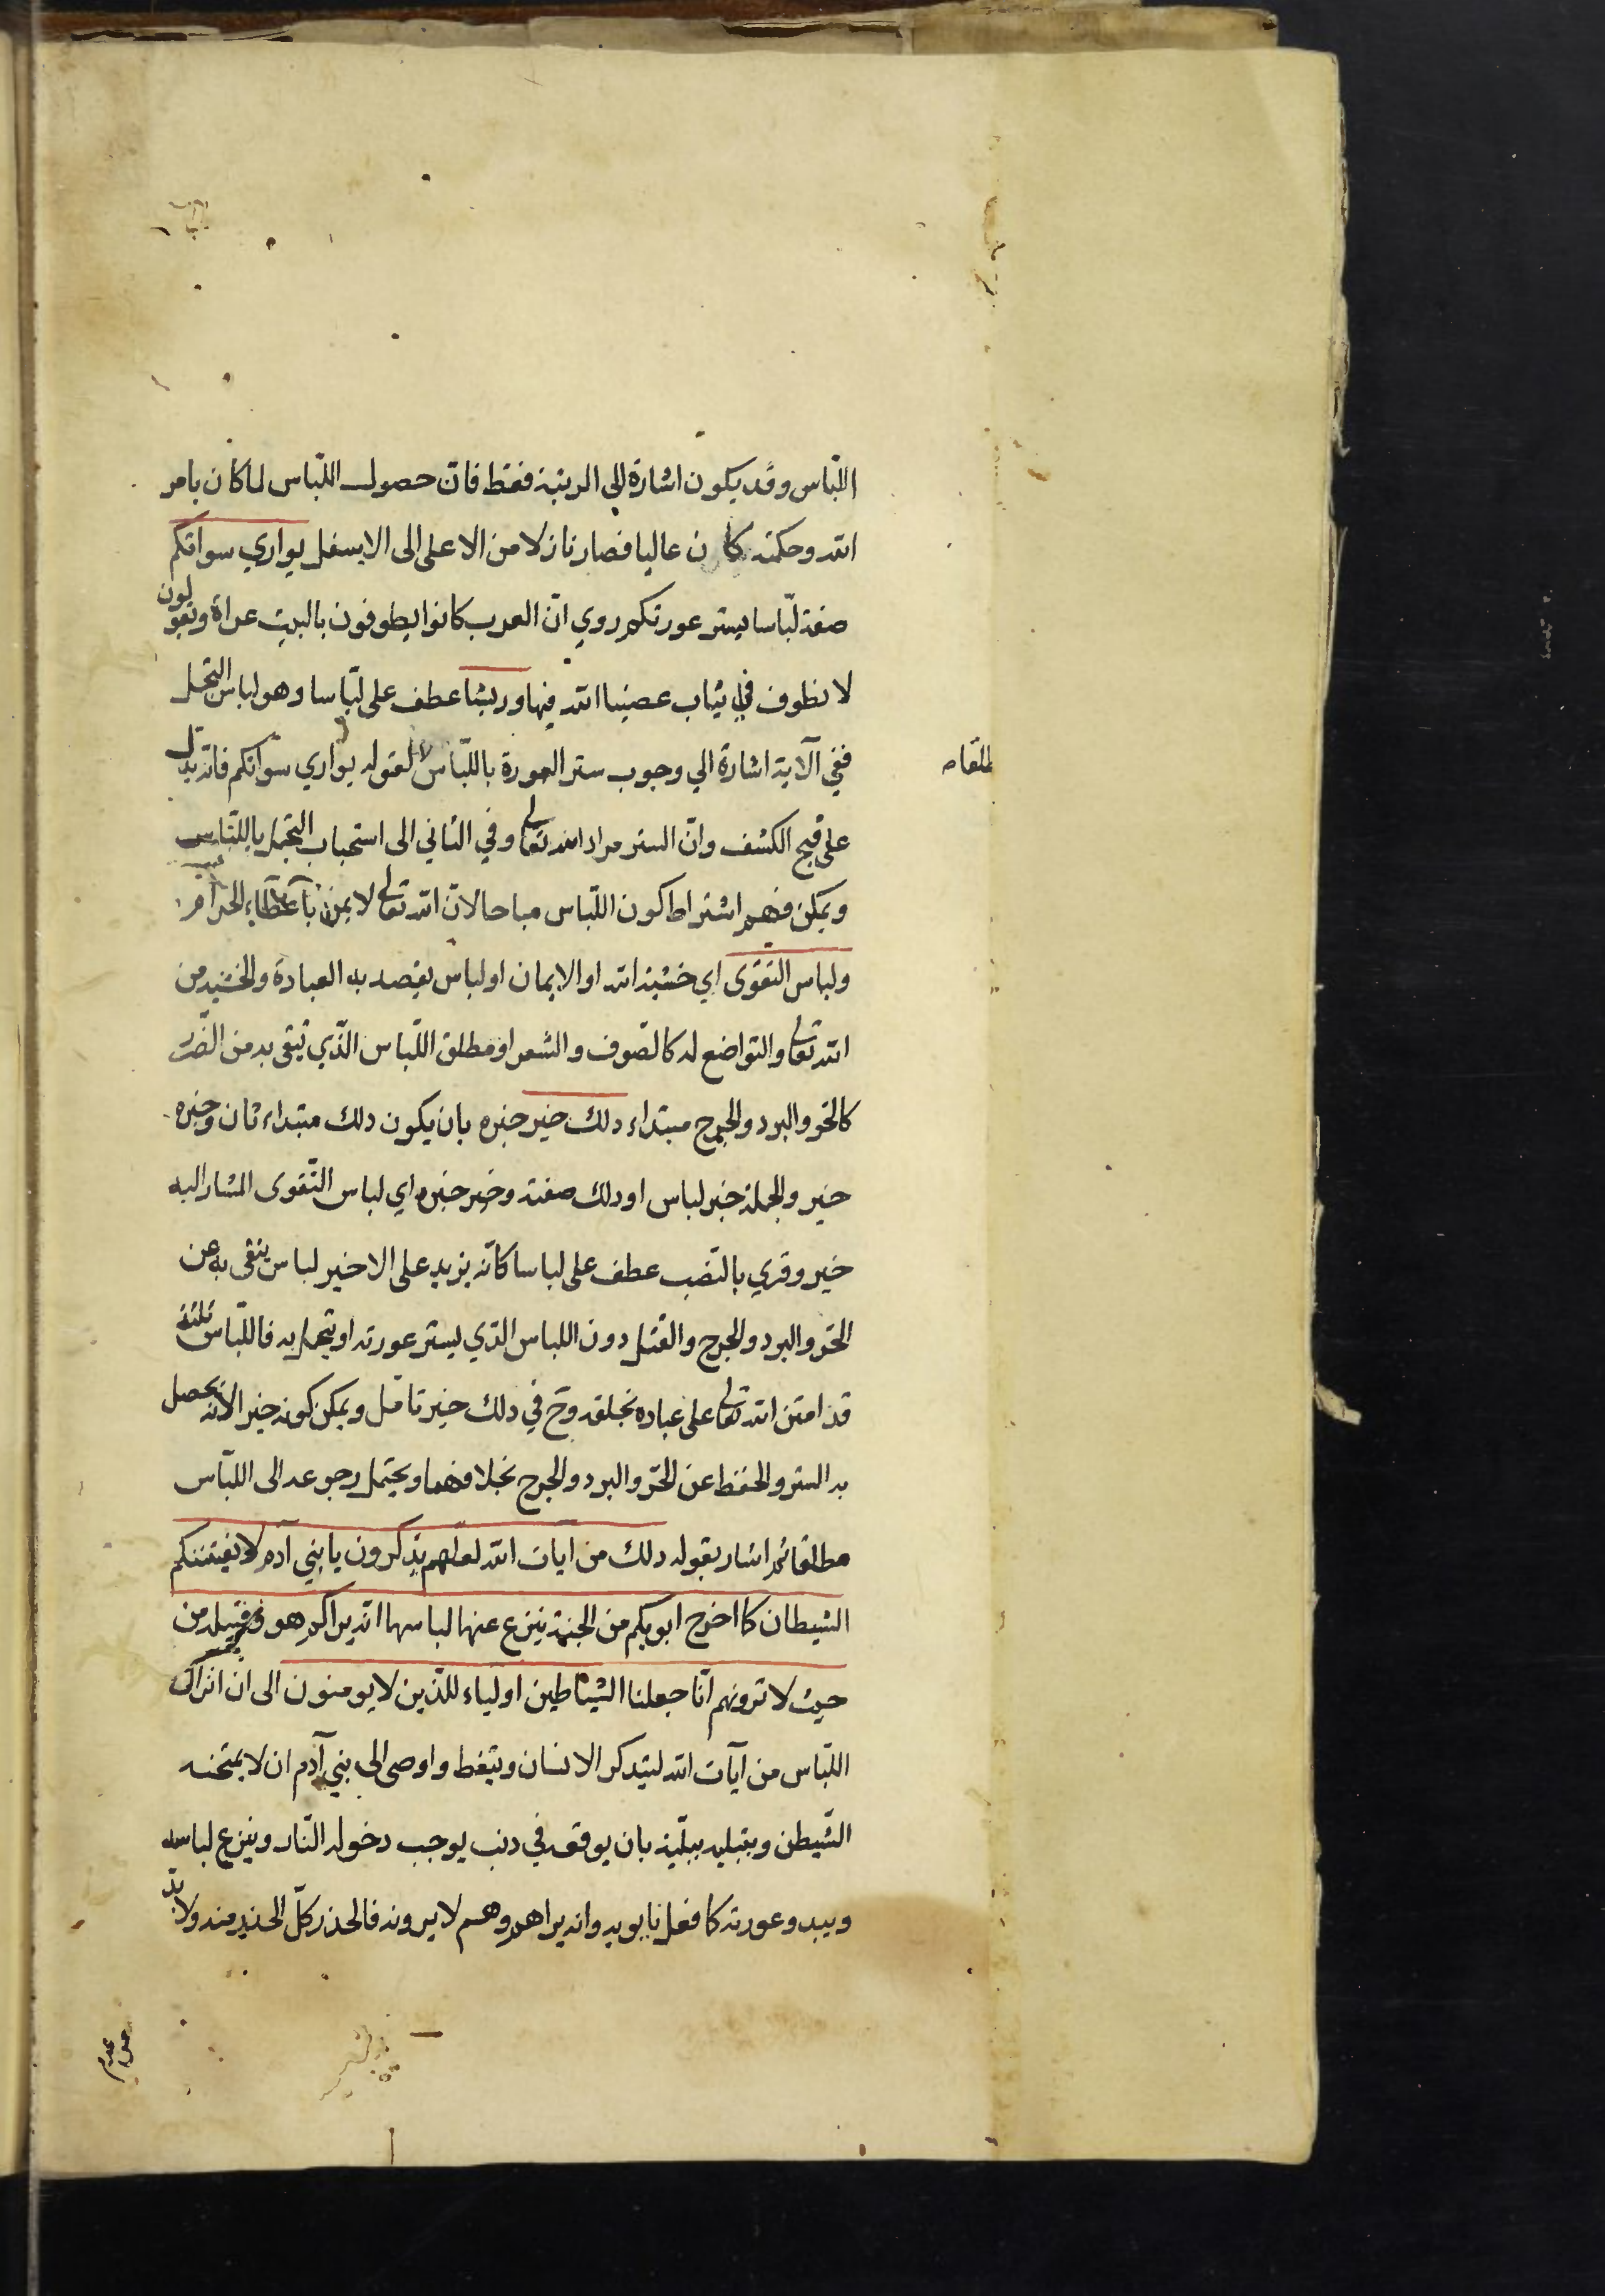 اللّباس وقد يكون اشارة الى الرتبة فقط فان حصول اللّباس لما كان بامر
الله وحكمته كان عاليا فصار نازلا من الاعلى الى الاسفل يواري سواتكم
صفة لبّاسا يستر عورتكم روي انّ العرب كانوا يطوفون بالبيت عراة ويقولون
لا نطوف في ثياب عصينا الله فيها وريشا عطف على لبّاسا وهو لباس التجمل
ففي الآية اشارة الي وجوب ستر العورة باللّباس لقوله يواري سواتكم فانه يدل
مطلقا
على قبح الكشف وانّ الستر مراد الله تعالى وفي الثاني الى استحباب التجمل باللّباس
ويمكن فهم اشتراط كون اللّباس مباحا لانّ الله تعالى لا يمن باعطاء الحرام
ولباس التقوى اي خشية الله او الايمان او لباس يقصد به العبادة والخشية من
الله تعالى والتواضع له كالصّوف والشعر او مطلق اللّباس الّذي يتقى به من الضّرر
كالحر والبرد والجرح مبتداء دلك خير خبره بان يكون دلك مبتداء ثان وخبره
خير والجملة خبر لباس او دلك صفته وخير خبره اي لباس التّقوى المشار اليه
خير وقري بالنّصب عطف على لباسا كانّه يزيد على الاخير لباس يتقى به عن
الحّر والبرد والجرح والقتل دون اللباس الذي يستر عورته او يتجمل به فاللّباس ثلثة
قد امتن الله تعالى على عباده بخلقه وح في دلك خير تامّل ويمكن كونه خير الانه يحصل
به الستر والحفظ عن الحّر والبرد والجرح بخلافهما ويحتمل رجوعه الى اللبّاس
مطلقا ثم اشار بقوله دلك من ايات الله لعلّهم يذكرون يا بني آدم لا يفتننكم
الشيطان كما اخرج ابويكم من الجنة ينزع عنهما لباسهما انه يراكم هو وقبيله من
حيث لا ترونهم انّا جعلنا الشياطين اولياء للّذين لا يومنون الى ان انزال
اللّباس من آيات الله ليتدكر الانسان ويتعظ واوصى الى بني آدم ان لا يمتحنه
الشّيطن ويبتليه ببليّة بان يوقعه في دنب يوجب دخوله النّار وينزع لباسه
ويبدو عورته كما فعل بابويه وانه يراهم وهم لا يرونه فالحذر كلّ الحذر منه ولا بدّ